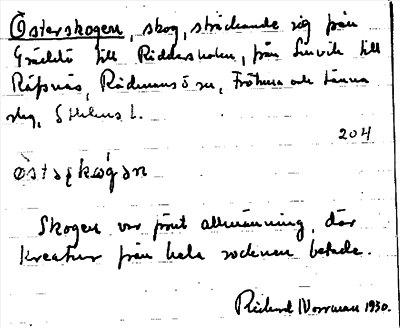 Österskogen, skog, sträckande sig från
Gräddö till Riddersholm, från Sinvik till
Räfsnäs, Rådmansö sn, Frötuna och Länna
skg, Sthlms l.
204
östərskωgən
Skogen var förut allmänning, där
kreatur från hela socknen betade.
Richard Norrman 1930.